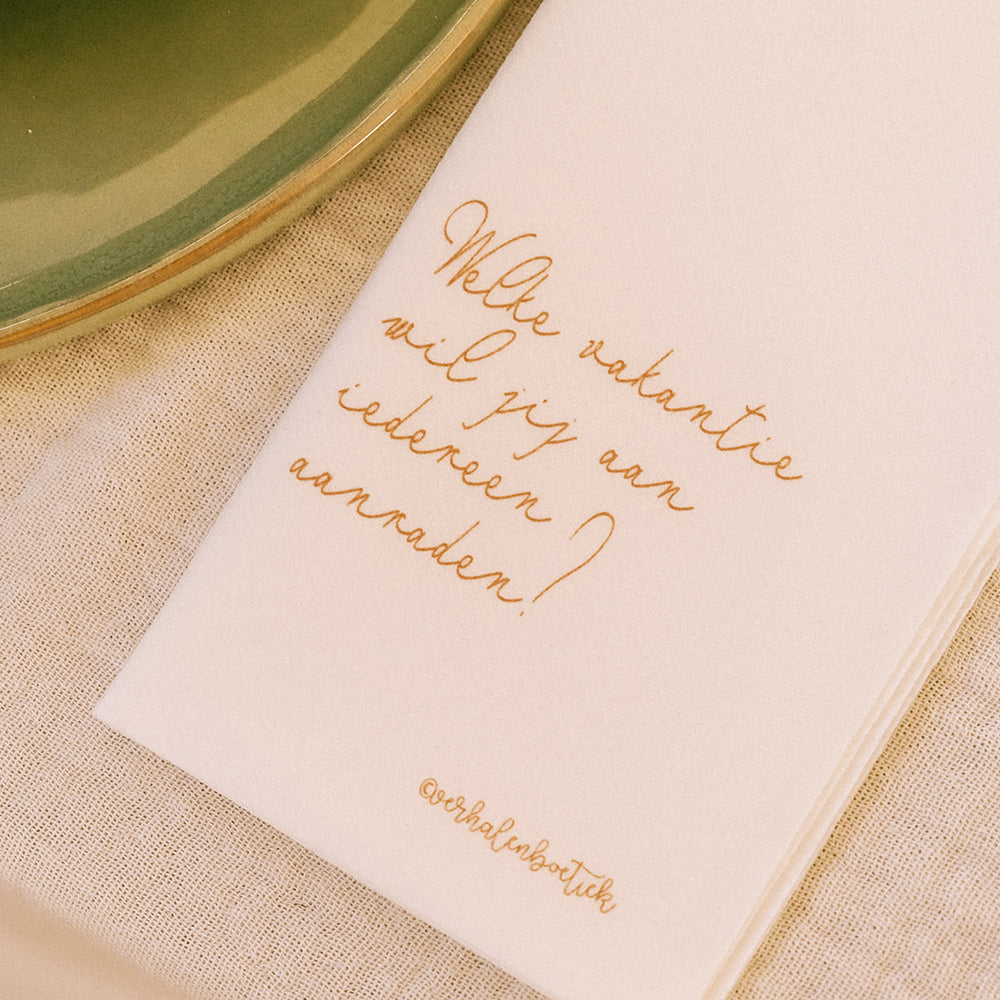 Welke vakantie
wil jij aan
iedereen
aanraden?
@verhalenboetiek